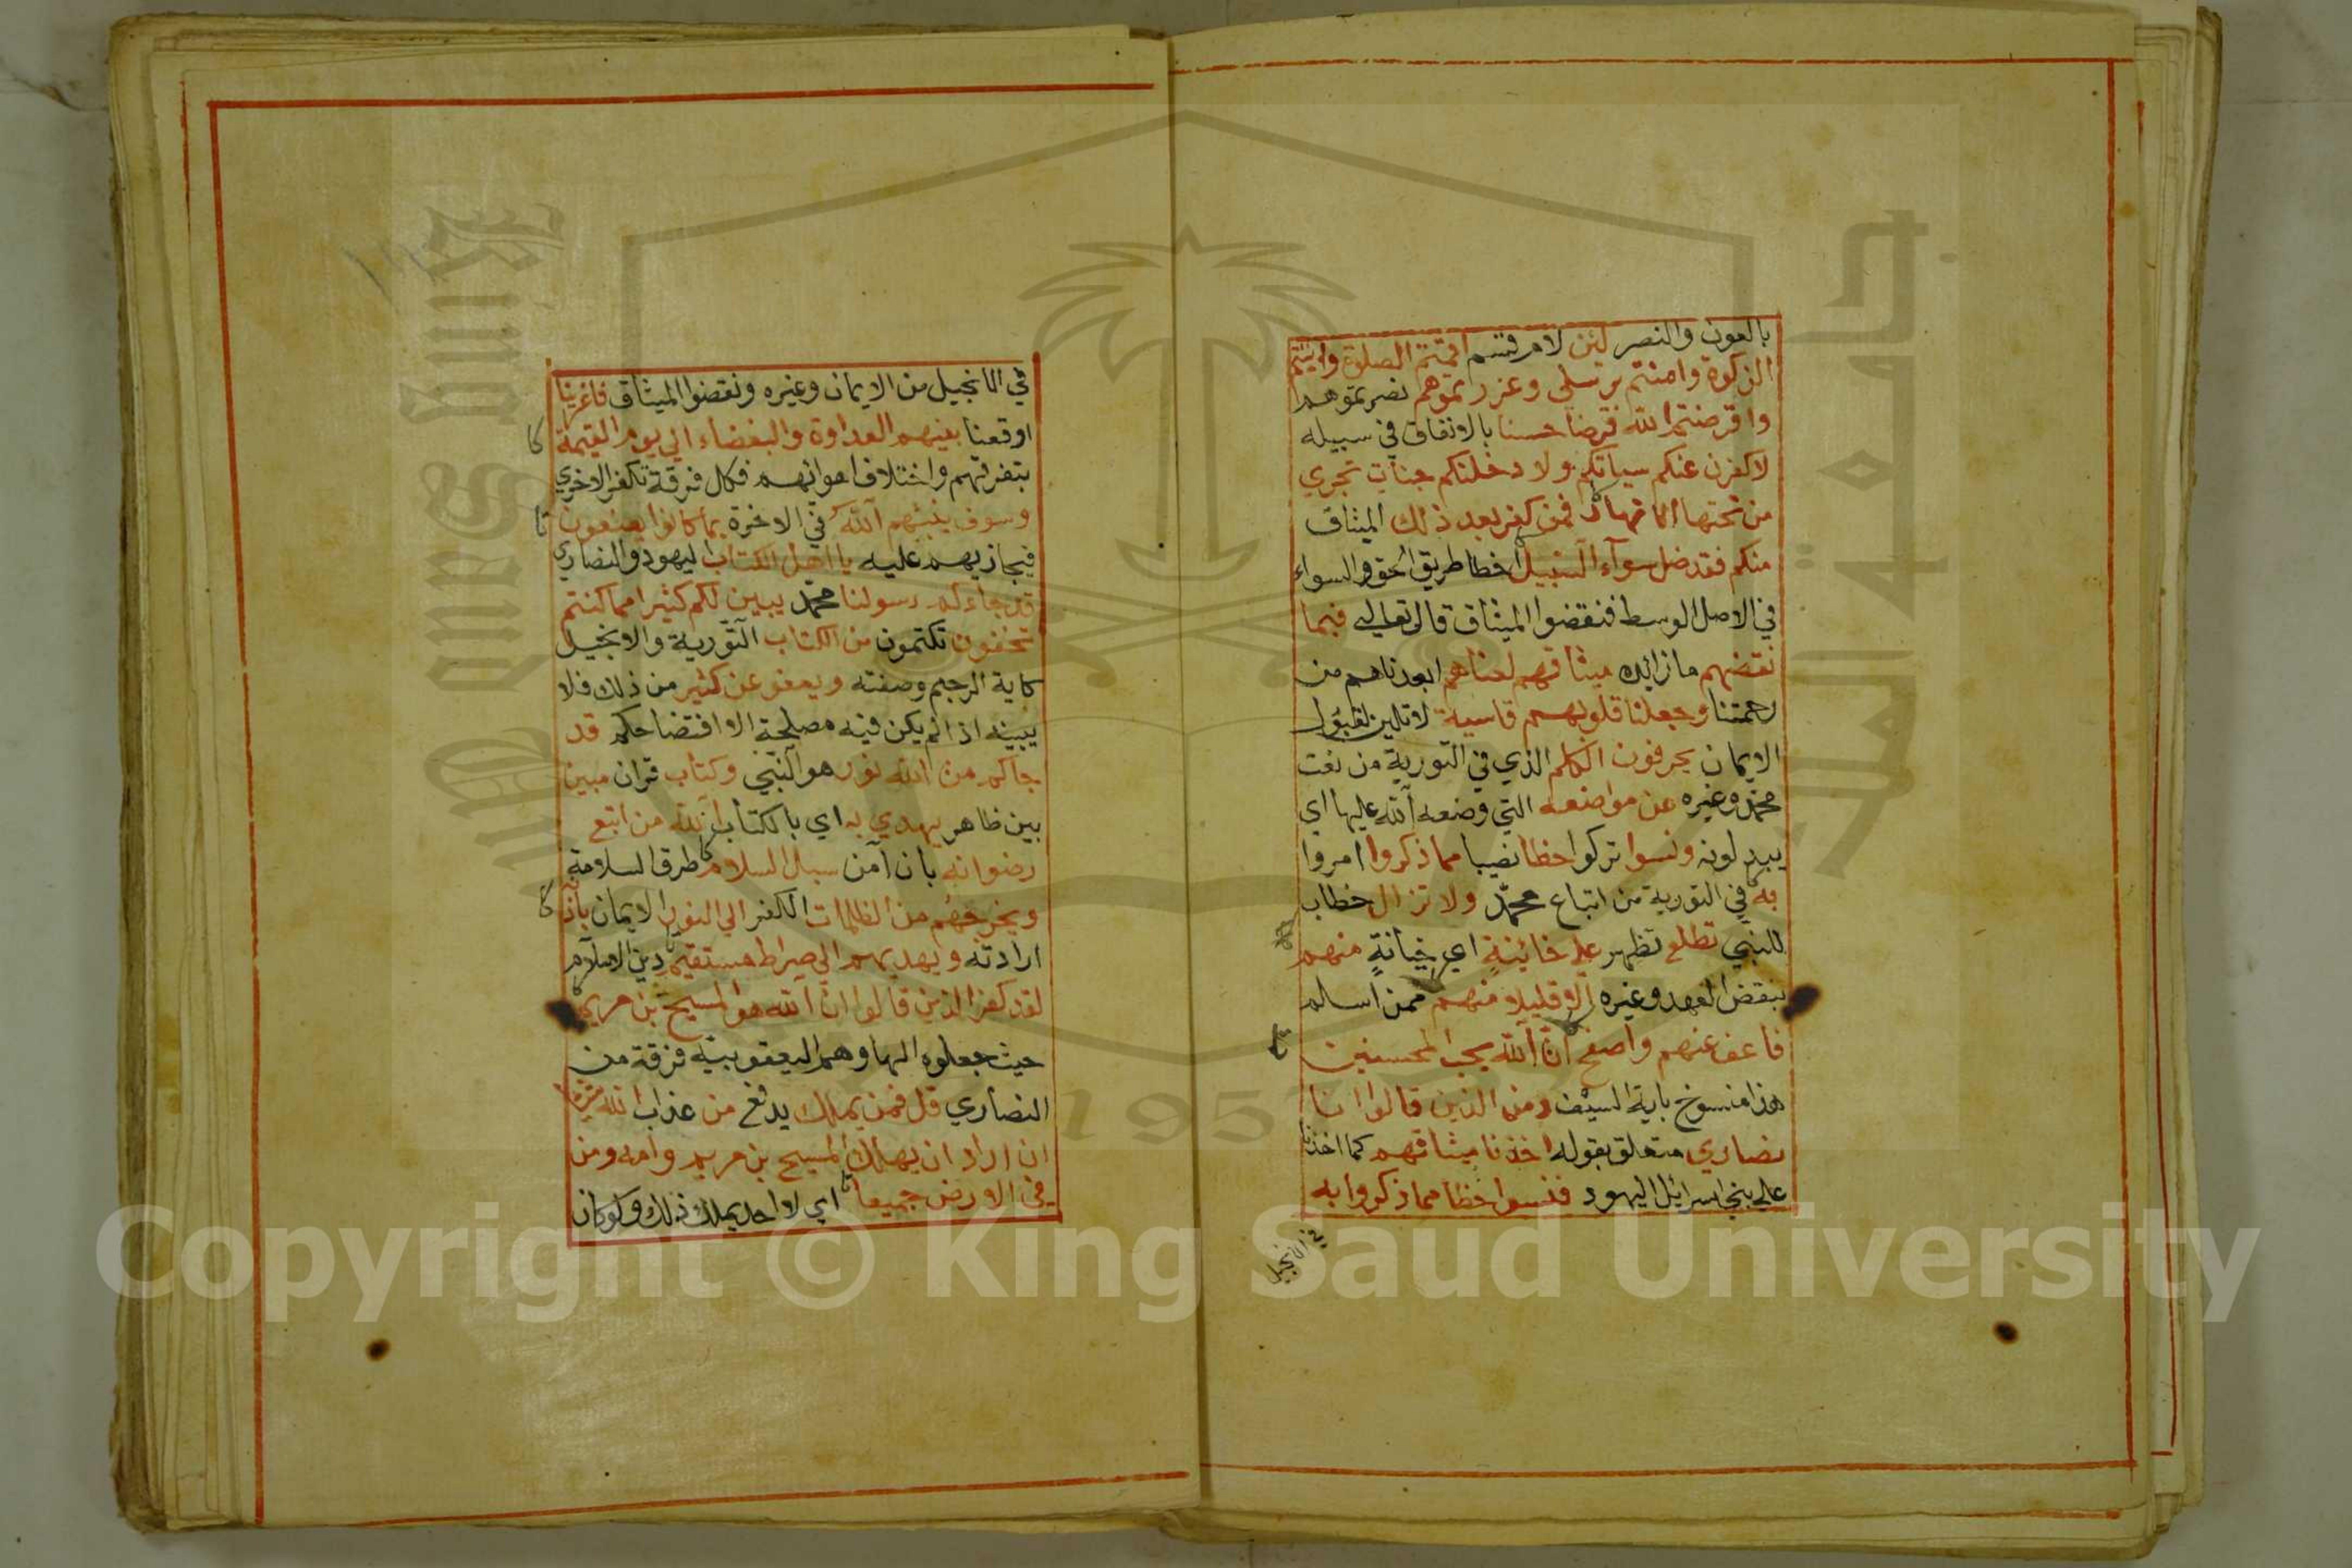 بالعون والنصر لئن لام قسم اقمتم الصلوة واتيتم
الزكوة وامنتم برسلي وعزرتموهم نصرتموهم
واقرضتم الله قرضا حسنا بالانفاق في سبيله
لاكفرن عنكم سياتكم ولادخلنكم جنات تجري
من تحتها الانهار فمن كفر بعد ذلك الميثاق
منكم فقد ضل سوآء السبيل اخطا طريق الحق والسواء
في الاصل الوسط فنقضوا الميثاق قال تعالي فبما
نقضهم ما زائده ميثاقهم لعناهم ابعدناهم من
رحمتنا وجعلنا قلوبهم قاسية لا تلين لقبول
الايمان يحرفون الكلم الذي في التورية من نعت
محمد وغيره عن مواضعه التي وضعه الله عليها اي
يبدلونه ونسوا تركوا حظا نصيبا مما ذكروا امروا
به في التورية من اتباع محمد ولا تزال خطاب
للنبي تطلع تظهر علي خائينة اي بخيانة منهم
بنقض العهد وغيره الا قليلا منهم ممن اسلم
فاعف عنهم واصفح ان الله يحب المحسنين
هذا منسوخ باية السيف ومن الذين قالوا انا
نصاري متعلق بقوله اخذنا ميثاقهم كما اخذنا
علي بني اسرائل اليهود فنسوا حظا مما ذكروا به
في الانجيل
في الانجيل من الايمان وغيره ونقضوا الميثاق فاغرينا
اوقعنا بينهم العداوة والبغضاء الي يوم القيمة
بتفرقهم واختلاف اهوائهم فكل فرقة تكفر الاخري
وسوف ينبئهم الله في الاخرة بما كانوا يصنعون
فيجازيهم عليه يا اهل الكتاب اليهود والنصاري
قد جاءكم رسولنا محمد يبين لكم كثيرا مما كنتم
تخفون تكتمون من الكتاب التورية والانجيل
كاية الرجم وصفته ويعفو عن كثير من ذلك فلا
يبينه اذا لم يكن فيه مصلحة الا افتضاحكم قد
جاكم من الله نور هو النبي وكتاب قران مبين
بين ظاهر يهدي به اي بالكتاب الله من اتبع
رضوانه بان آمن سبل السلام طرق السلامة
ويخرجهم من الظلمات الكفر الي النور الايمان باذنه
ارادته ويهديهم الي صراط مستقيم دين الاسلام
لقد كفر الذين قالوا ان الله هو المسيح بن مريم
حيث جعلوه الها وهم اليعقوبية فرقة من
النصاري قل فمن يملك يدفع من عذاب الله شيئا
ان اراد ان يهلك المسيح بن مريم وامه ومن
في الارض جميعا اي لا احد يملك ذلك ولو كان
Copyright © King Saud University